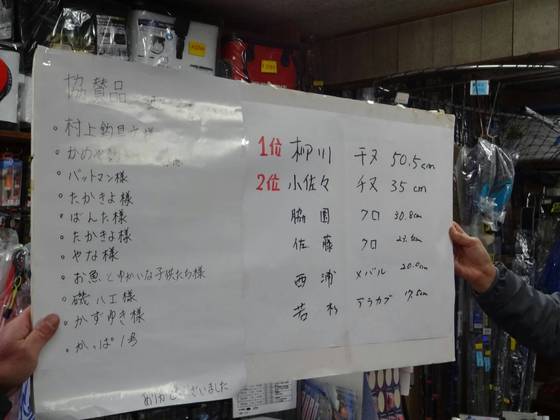 協賛品
・村上釣具 様
・かめや 様
・バットマン様
・たかきよ様
・ばんた様
・たかきよ様
・やな様
・お魚とゆかいな子供たち様
・磯八工様
・かずゆき様
・かっぱ1号
ありがとうございました
1位 柳川 チヌ 50.5cm
2位 小佐々 チヌ 35cm
脇園 クロ 30.8cm
佐藤 クロ
西浦 メバル
若杉 アラカブ 17.5cm